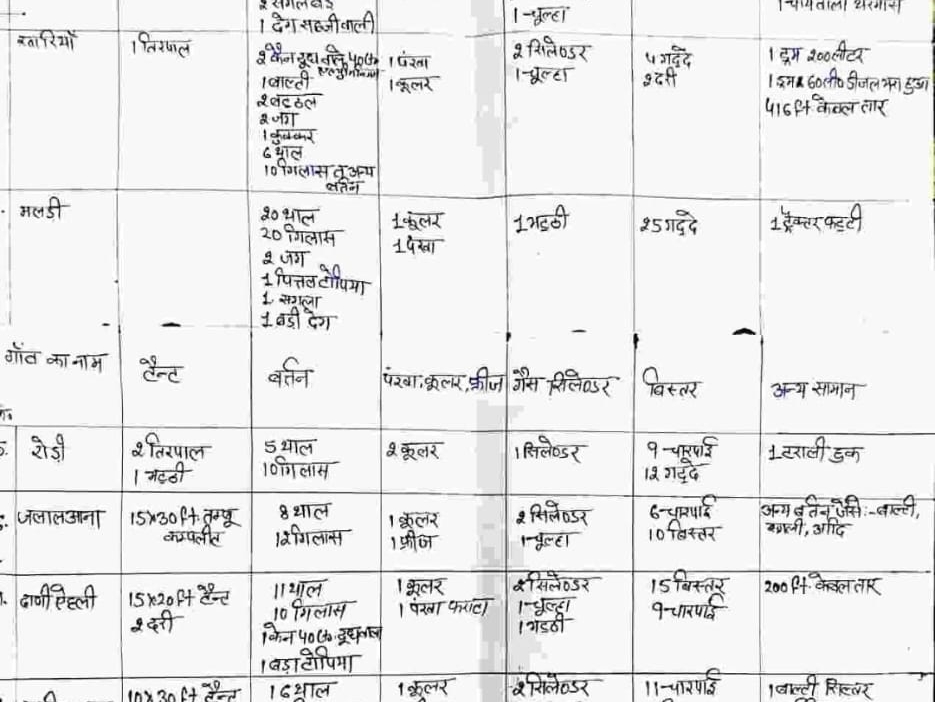 1 देग सब्जी वाली
1-चूल्हा
खारियाँ
1 तिरपाल
2 कैन दूध वाले 40 kg
1 बाल्टी
2 बठ्ठल
2 जग
1 कुक्कर
6 थाल
10 गिलास व अन्य
बर्तन
1 पंखा
1 कूलर
2 सिलेण्डर
1-चूल्हा
4 गद्दे
2 दरी
1 ड्रम 200 लीटर
1 ड्रम 60 ली० डीजल भरा हुआ
416 ft केबल तार
मलड़ी
20 थाल
20 गिलास
2 जग
1 पित्तल टोपिया
1 सगला
1 बडी देग
1 कूलर
1 पंखा
1 भठ्ठी
25 गद्दे
1 ट्रैक्टर फट्टी
गाँव का नाम
टैन्ट
बर्तन
पंखा, कूलर, फ्रीज
गैस सिलेण्डर
बिस्तर
अन्य सामान
रोड़ी
2 तिरपाल
1 भठ्ठी
5 थाल
10 गिलास
2 कूलर
1 सिलेण्डर
9-चारपाई
12 गद्दे
1 टराली हुक
जलालआना
15x30 ft तम्बू
कम्पलीट
8 थाल
12 गिलास
1 कूलर
1 फ्रीज
2 सिलेण्डर
1-चूल्हा
6-चारपाई
10 बिस्तर
अन्य बर्तन जैसे:- बाल्टी,
सगली, आदि
ढाणी ऐहली
15x20 ft टैन्ट
2 दरी
11 थाल
10 गिलास
1 कैन 40 kg दूध वाला
1 बड़ा टोपिया
1 कूलर
1 पंखा फर्राटा
2 सिलेण्डर
1-चूल्हा
1 भठ्ठी
15 बिस्तर
9-चारपाई
200 ft केबल तार
10x30 ft टैन्ट
16 थाल
1 कूलर
2 सिलेण्डर
11-चारपाई
1 बाल्टी सिल्वर